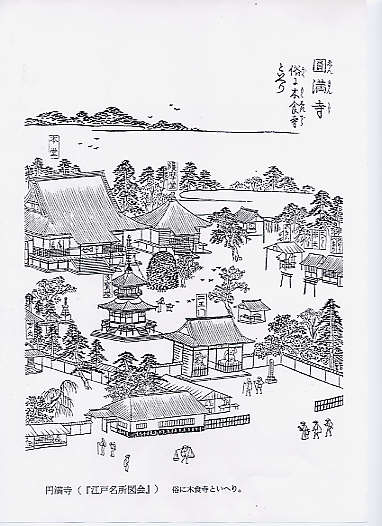 圓満寺
俗に木食寺
といへり
本堂
円満寺(『江戸名所図会』) 俗に木食寺といへり。